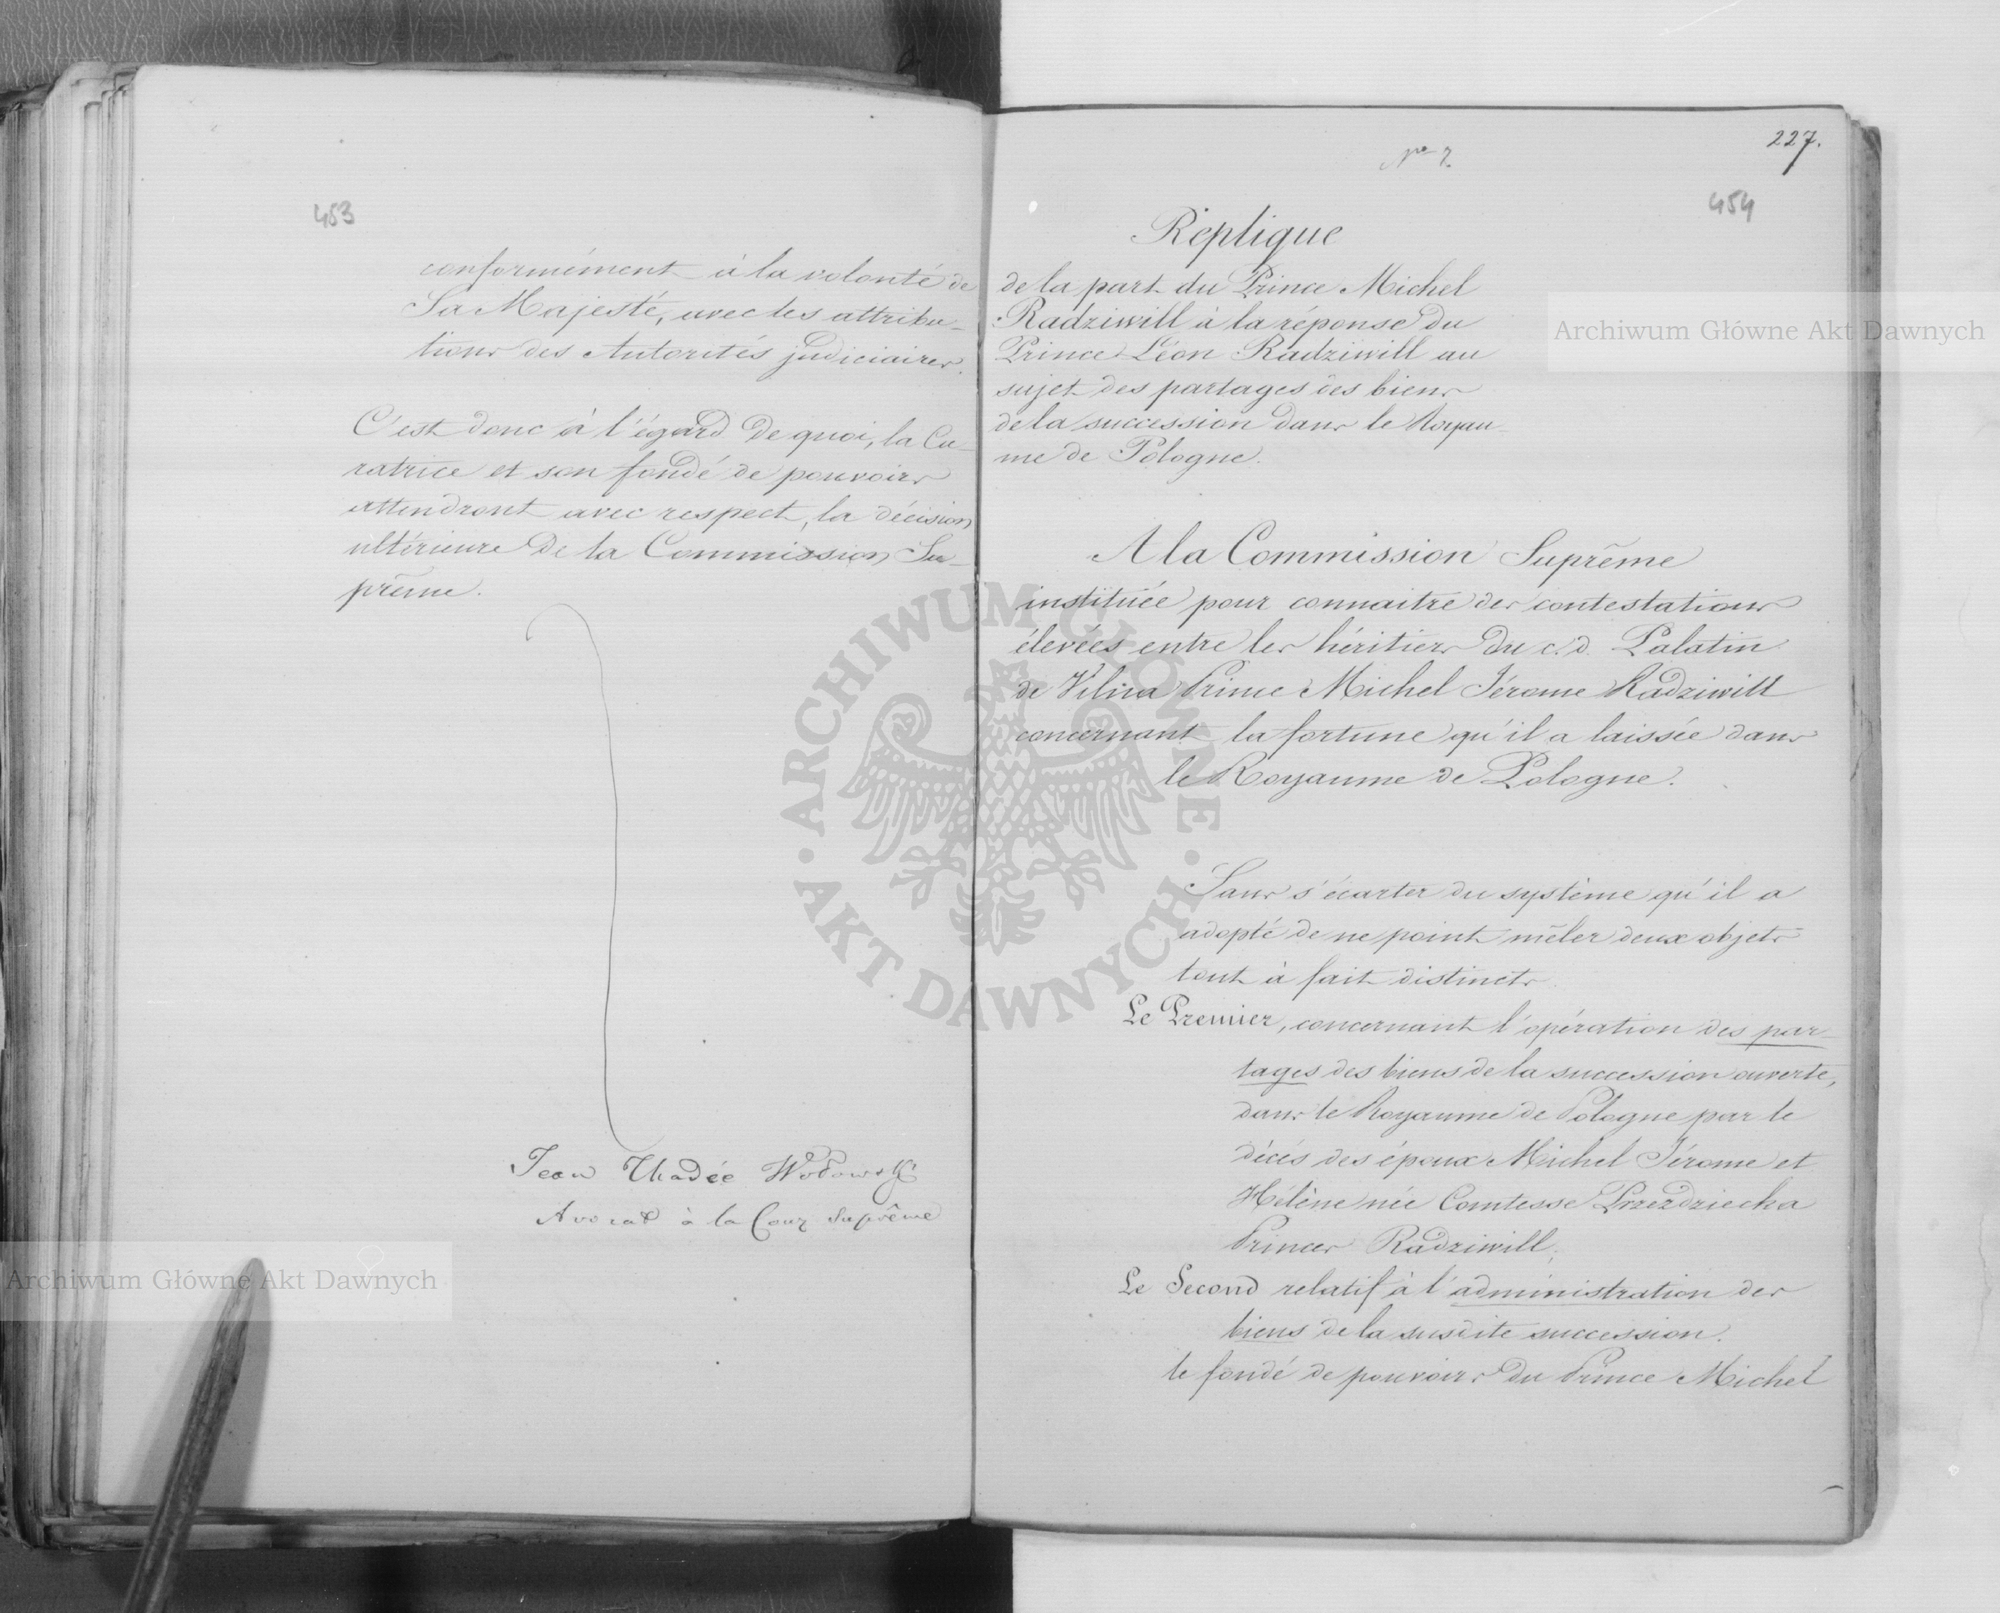 453
conformément à la volonté de
Sa Majesté, avec les attribu-
tions des Autorités judiciaires.
C'est donc à l'égard de quoi, la Cu-
ratrice et son fondé de pouvoirs
attendront avec respect, la décision
ultérieure de la Commission Su-
prême.
Jean Thadée Wodowski
Avocat à la Cour Suprême
227.
454
Réplique
de la part du Prince Michel
Radziwill à la réponse du
Prince Léon Radziwill au
sujet des partages des biens
de la succession dans le Royau-
me de Pologne.
A la Commission Suprême
instituée pour connaitre des contestations
élevées entre les héritiers du c.d. Palatin
de Vilna Prince Michel Jérome Radziwill
concernant la fortune qu'il a laissée dans
le Royaume de Pologne.
Sans s'écarter du système qu'il a
adopté de ne point mêler deux objets
tout à fait distincts
Le Premier, concernant l'opération des par-
tages des biens de la succession ouverte,
dans le Royaume de Pologne par le
décés des époux Michel Jérome et
Hélène née Comtesse Przezdziecka
Princes Radziwill,
Le Second relatif à l'administration des
biens de la susdite succession.
le fondé de pouvoirs du Prince Michel
Archiwum Główne Akt Dawnych
Archiwum Główne Akt Dawnych
ARCHIWUM GŁÓWNE · AKT DAWNYCH ·